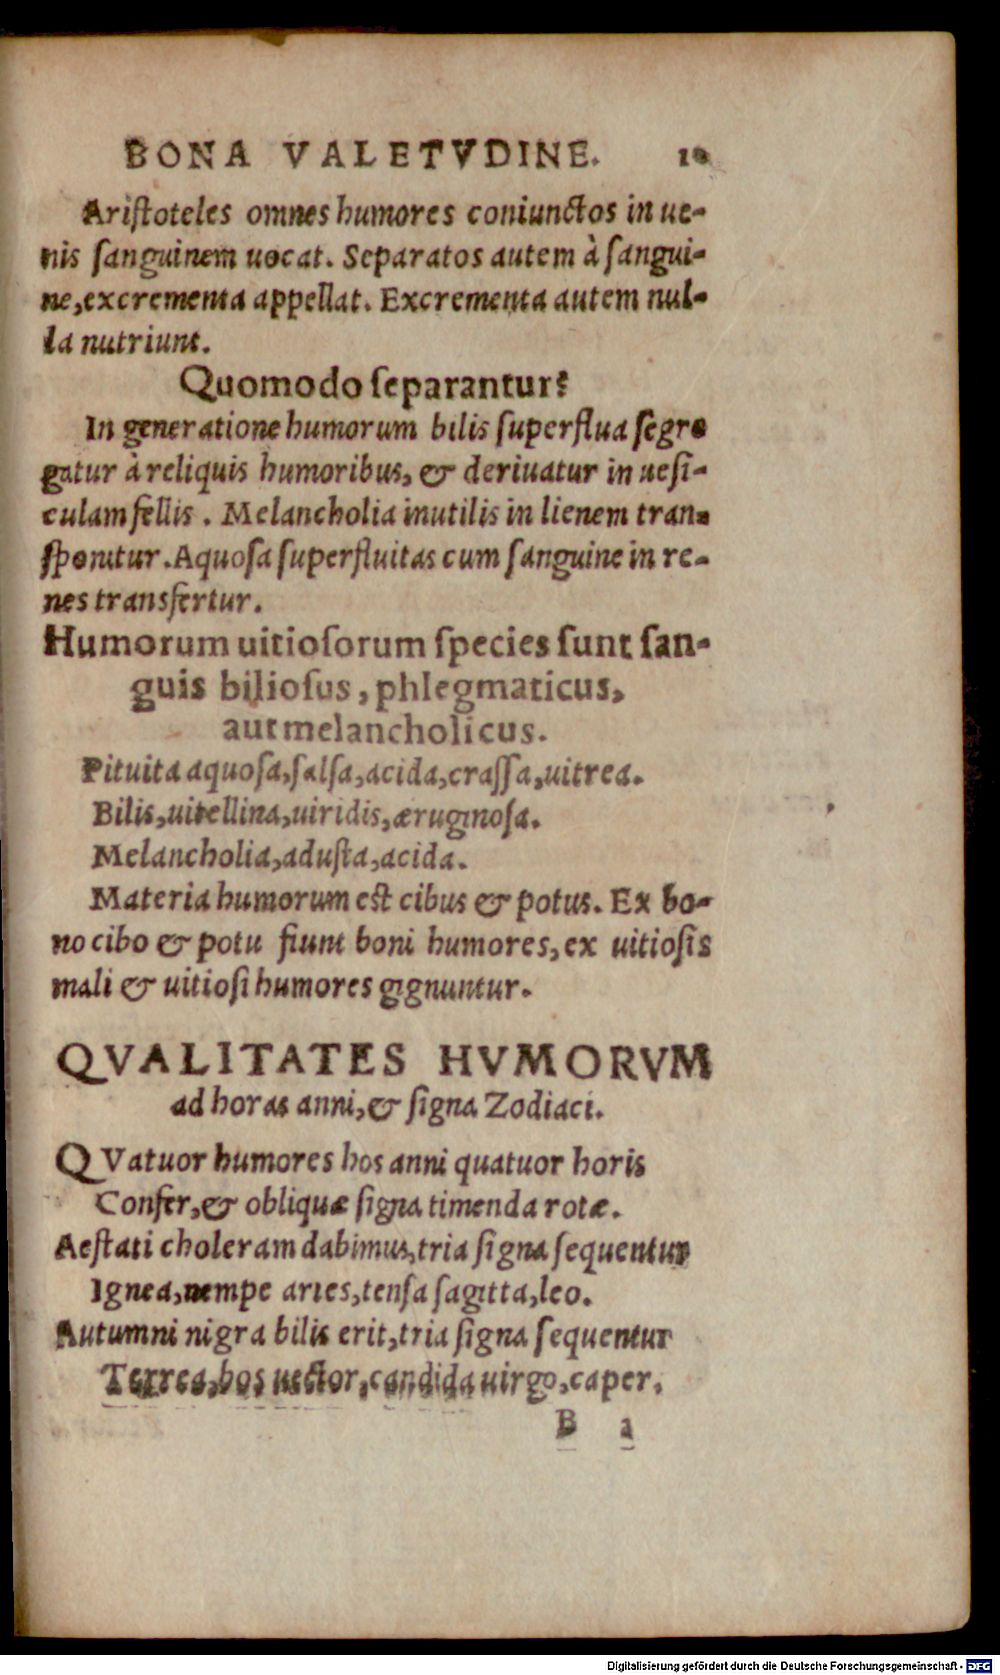 BONA VALETVDINE. 10
Aristoteles omnes humores coniunctos in ue-
nis sanguinem uocat. Separatos autem à sangui-
ne, excrementa appellat. Excrementa autem nul-
la nutriunt.
Quomodo separantur?
In generatione humorum bilis superflua segre
gatur à reliquis humoribus, & deriuatur in uesi-
culam fellis. Melancholia inutilis in lienem tran-
sponitur. Aquosa superfluitas cum sanguine in re-
nes transfertur.
Humorum uitiosorum species sunt san-
guis biliosus, phlegmaticus,
aut melancholicus.
Pituita aquosa, salsa, acida, crassa, uitrea.
Bilis, uitellina, uiridis, æruginosa.
Melancholia, adusta, acida.
Materia humorum est cibus & potus. Ex bo-
no cibo & potu fiunt boni humores, ex uitiosis
mali & uitiosi humores gignuntur.
QVALITATES HVMORVM
ad horas anni, & signa Zodiaci.
QVatuor humores hos anni quatuor horis
Confer, & obliquæ signa timenda rotæ.
Aestati choleram dabimus, tria signa sequentur
Ignea, nempe aries, tensa sagitta, leo.
Autumni nigra bilis erit, tria signa sequentur
Terrea, bos uector, candida uirgo, caper.
B 2
Digitalisierung gefördert durch die Deutsche Forschungsgemeinschaft - DFG